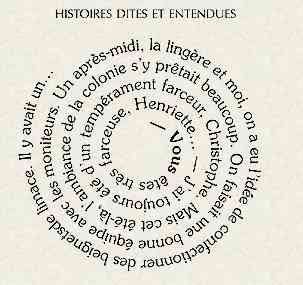 HISTOIRES DITES ET ENTENDUES
— Vous êtes très farceuse, Henriette... — J'ai toujours été d'un tempérament farceur, Christophe. Mais cet été-là, l'ambiance de la colonie s'y prêtait beaucoup. On faisait une bonne équipe avec les moniteurs. Un après-midi, la lingère et moi, on a eu l'idée de confectionner des beignetsde limace. Il y avait un...